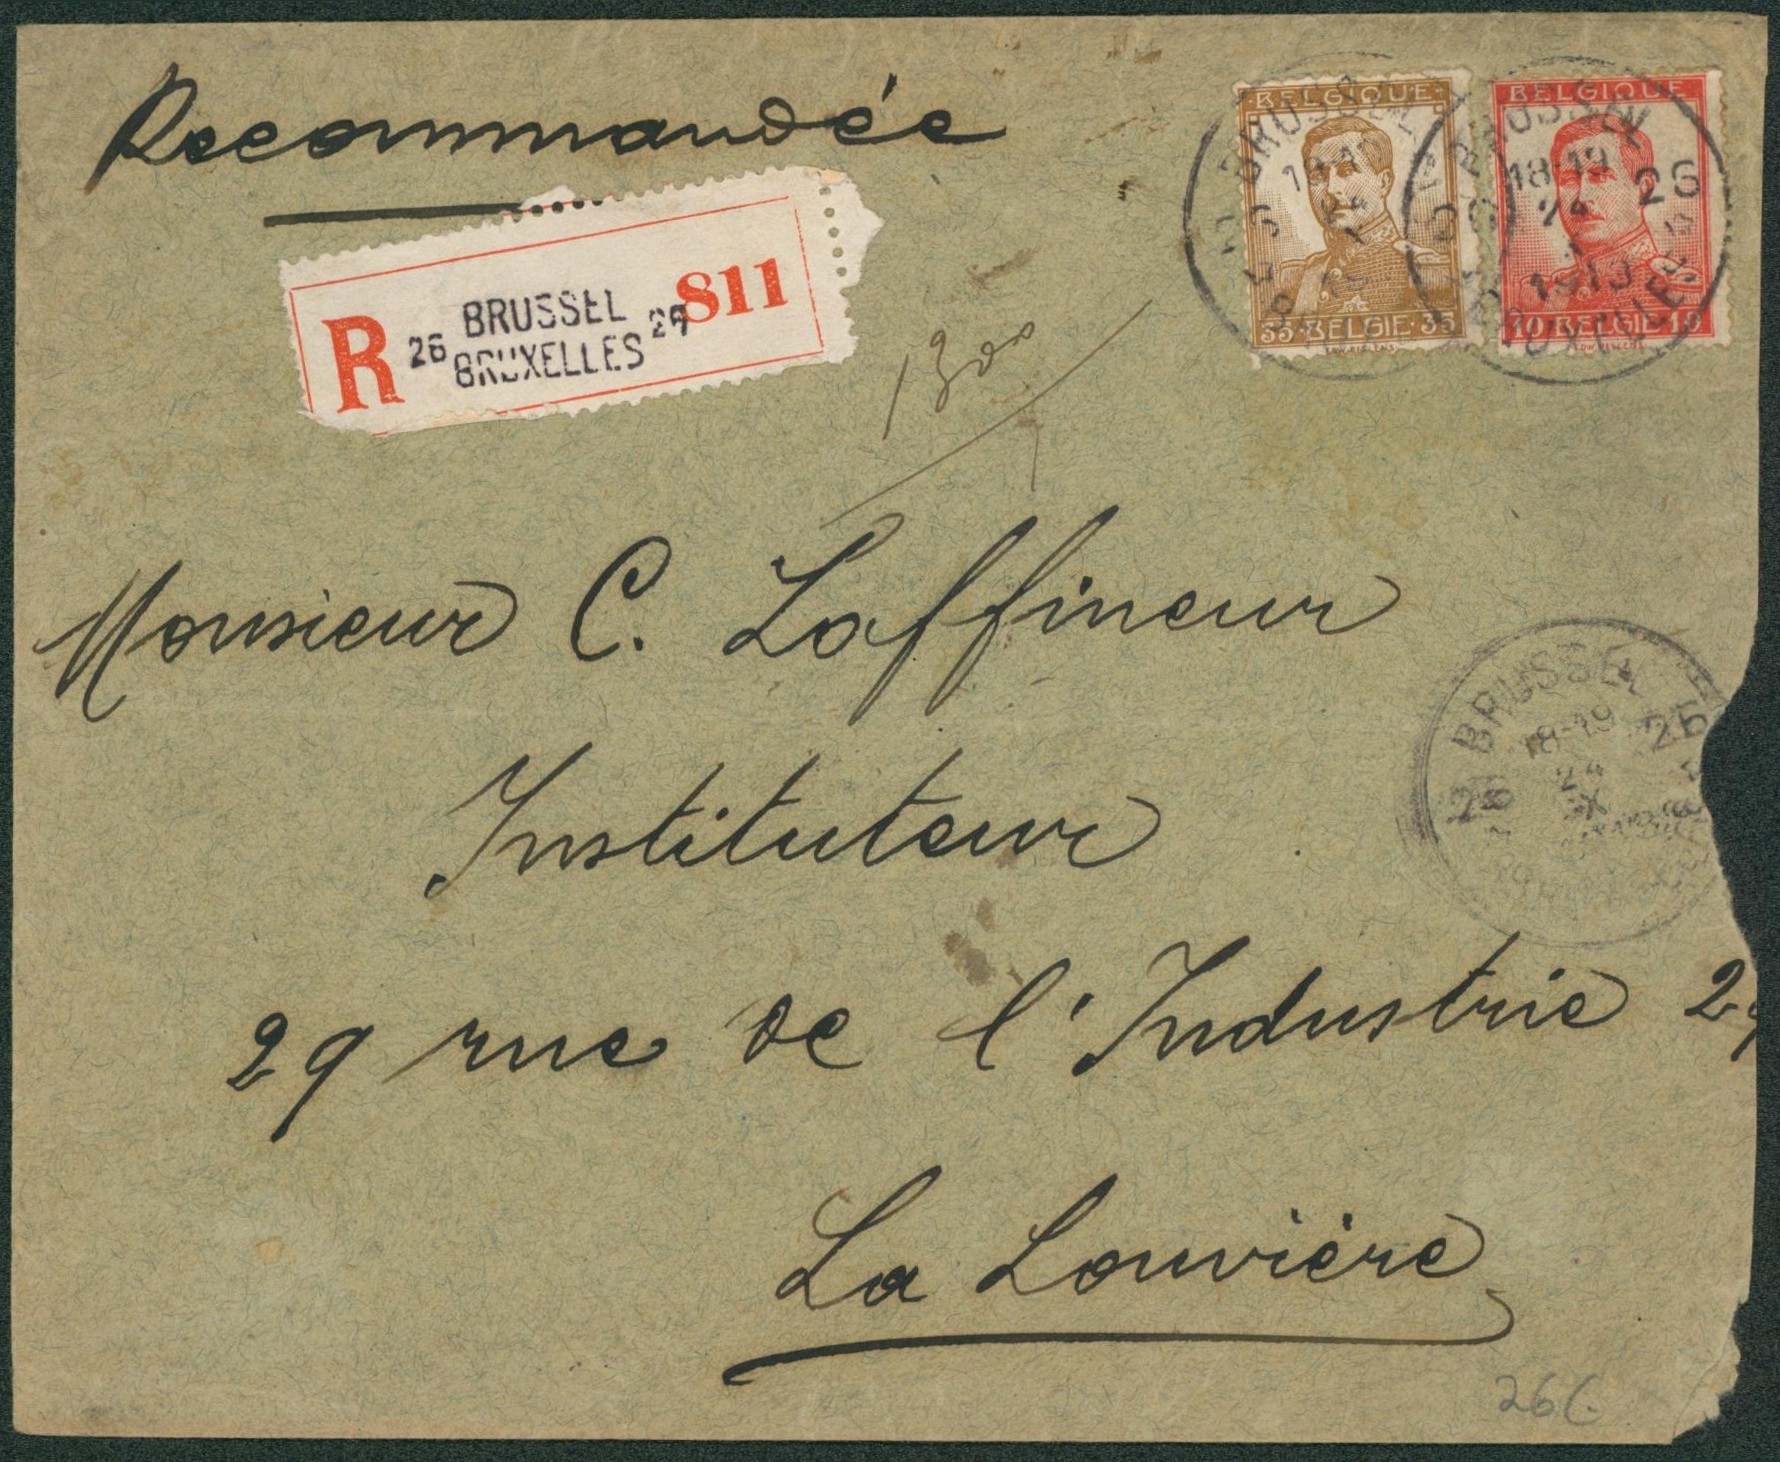 Recommandée
R 26 BRUSSEL BRUXELLES 811
BELGIQUE
35 BELGIE 35
BELGIQUE
10 BELGIE 10
BRUSSEL
BRUSSEL
18-19
26
24
1913
Monsieur C. Laffineur
BRUSSEL
18-19
26
24
IX
Instituteur
29 rue de l'Industrie 29
La Louvière